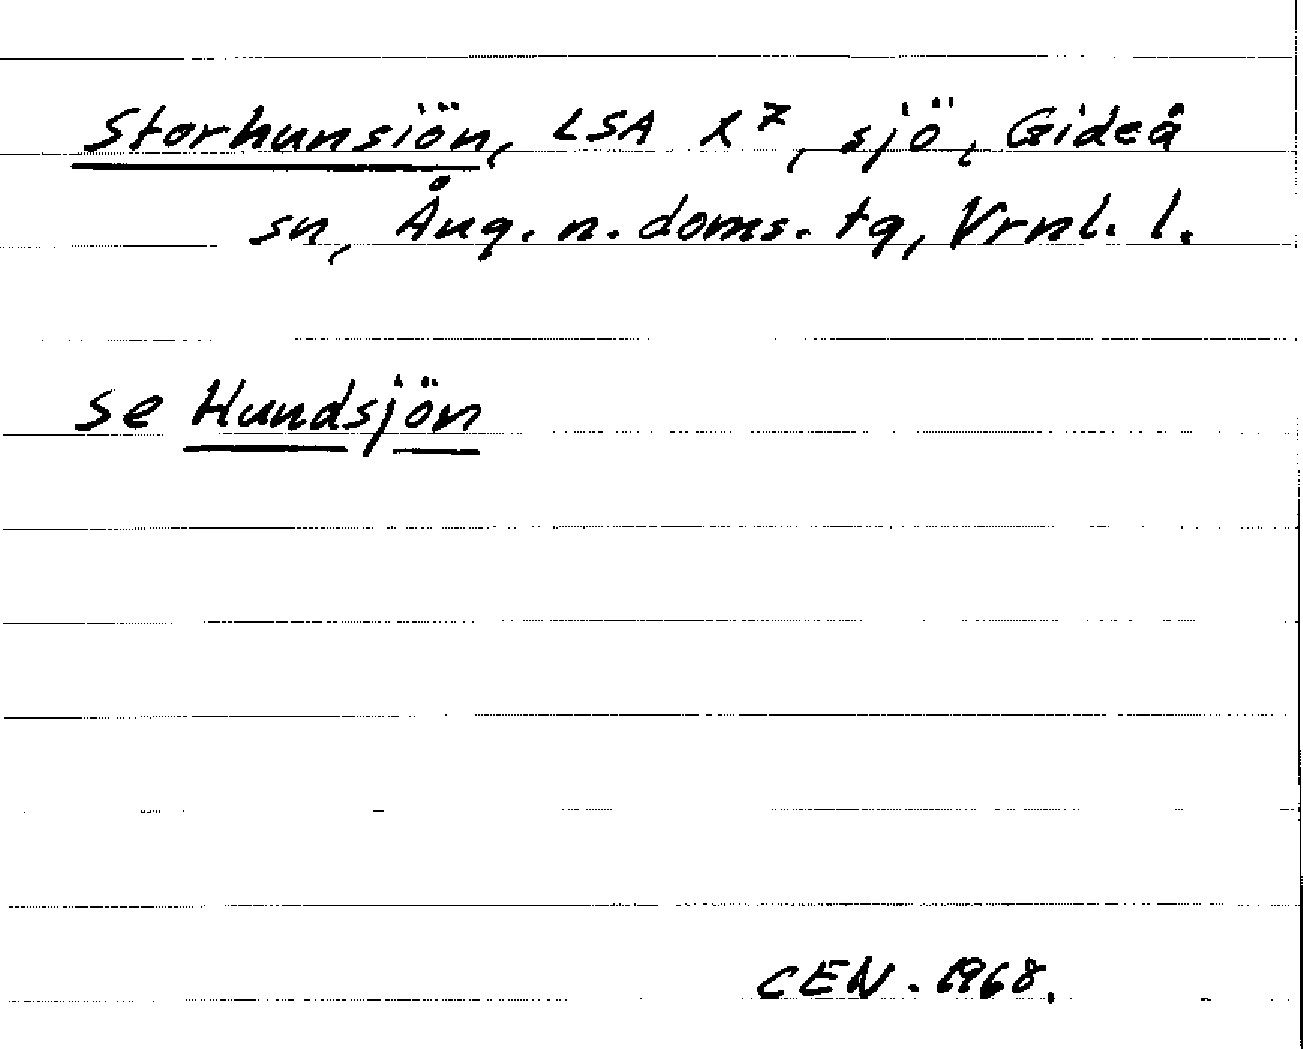 Storhunsiön, LSA X⁷, sjö, Gideå
sn, Ång. n. doms. tg, Vrnl. l.
se Hundsjön
CEN. 1968.